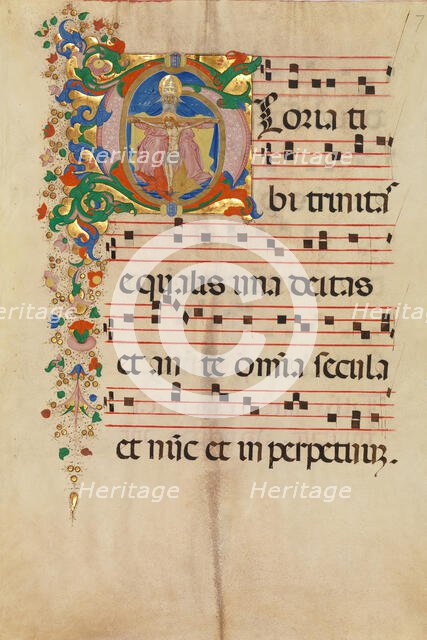 GLoria ti
bi trinitas
equalis una deitas
et an te omia secula
et nuc et in perpetuu.
7
Heritage
Heritage
Heritage
Heritage
Heritage
Heritage
Heritage
Heritage